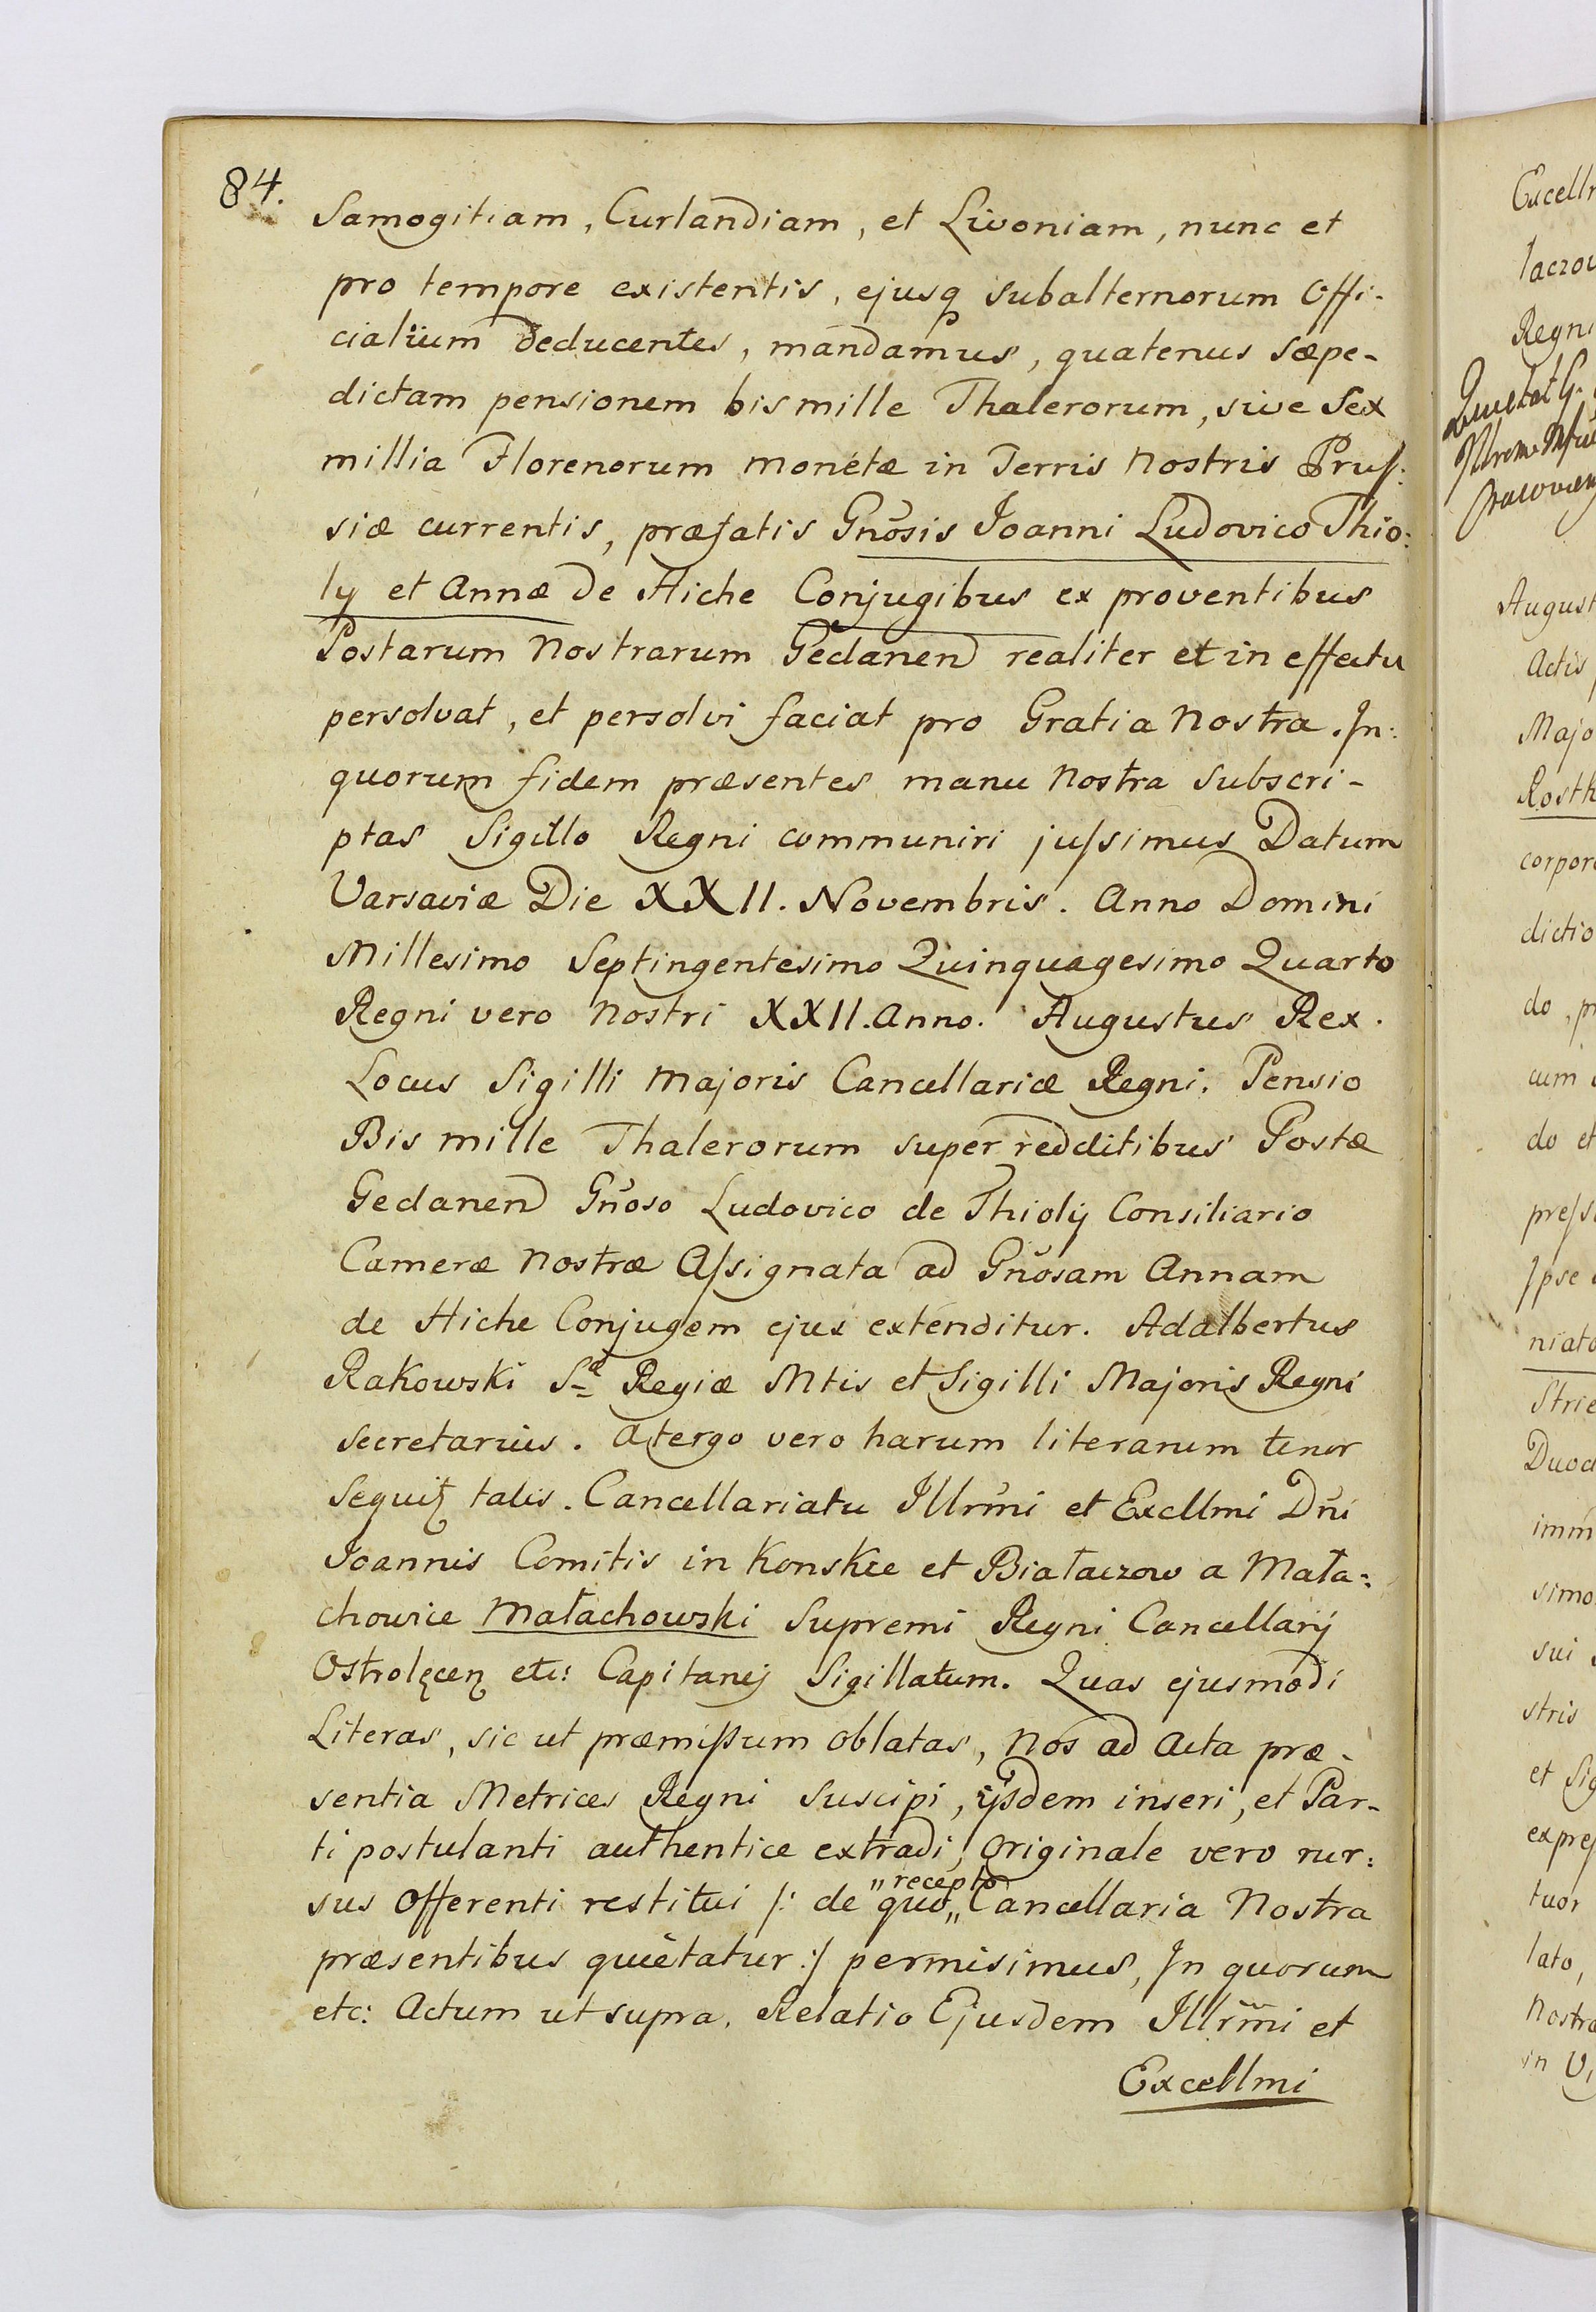 84.
Samogitiam, Curlandiam, et Livoniam, nunc et
pro tempore existentis, ejusq subalternorum Offi-
cialium deducentes, mandamus, quatenus sæpe-
dictam pensionem bis mille Thalerorum, sive Sex
millia Florenorum monetæ in Terris Nostris Prus:
siæ currentis, præfatis Gn̄osis Joanni Ludovico Thio:
ly et Annæ de Hiche Conjugibus ex proventibus
Postarum Nostrarum Gedanen̄ realiter et in effectu
persolvat, et persolvi faciat pro Gratia Nostra. In:
quorum fidem præsentes manu Nostra subscri-
ptas Sigillo Regni communiri jussimus Datum
Varsaviæ Die XXII. Novembris. Anno Domini
Millesimo Septingentesimo Quinquagesimo Quarto
Regni vero Nostri XXII. Anno. Augustus Rex.
Locus Sigilli Majoris Cancellariæ Regni. Pensio
Bis mille Thalerorum super redditibus Postæ
Gedanen̄ Gn̄oso Ludovico de Thioly Consiliario
Cameræ Nostræ Assignata ad Gn̄osam Annam
de Hiche Conjugem ejus extenditur. Adalbertus
Rakowski Sæ Regiæ Mtis et Sigilli Majoris Regni
Secretarius. A tergo vero harum literarum tenor
Sequitz talis. Cancellariatu Illrm̄i et Excllmi Dn̄i
Joannis Comitis in Konskie et Białaczow a Mała:
chowice Małachowski Supremi Regni Cancellarij
Ostrolęcen̄ etc: Capitanej Sigillatum. Quas ejusmodi
Literas, sic ut præmissum oblatas, Nos ad Acta præ-
sentia Metrices Regni Suscipi, ijsdem inseri, et Par-
ti postulanti authentice extradi, Originale vero rur:
sus Offerenti restitui /: de quo „recepto„ Cancellaria Nostra
præsentibus quietatur :/ permisimus, In quorum
etc: Actum ut supra. Relatio Ejusdem Illrm̄i et
Excellmi
laczow
Regni
August
Actis
Majo
Rostk
corpor
dictio
do, pr
cum
do et
press
Ipse
niato
Strie
Duod
imm
simo
sui
stris
et Sig
expres
tuor
lato,
Nostra
in V